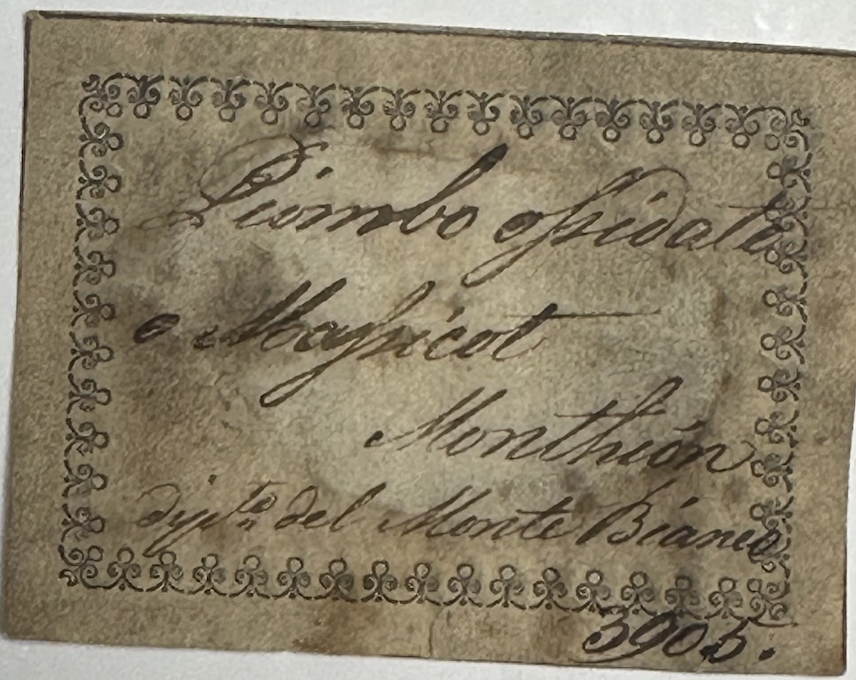 Piombo ossidato
o Massicot
Monthion
dip.to del Monte Bianco
390b.